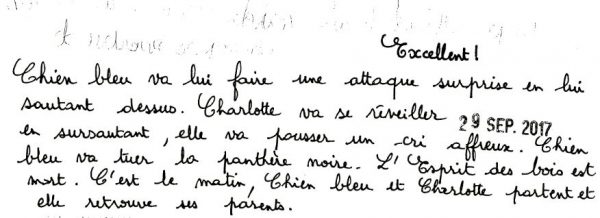 Excellent!
Chien bleu va lui faire une attaque surprise en lui
sautant dessus. Charlotte va se réveiller 29 SEP. 2017
en sursautant, elle va pousser un cri affreux. Chien
bleu va tuer la panthère noire. L'Esprit des bois est
mort. C'est le matin, Chien bleu et Charlotte partent et
elle retrouve ses parents.